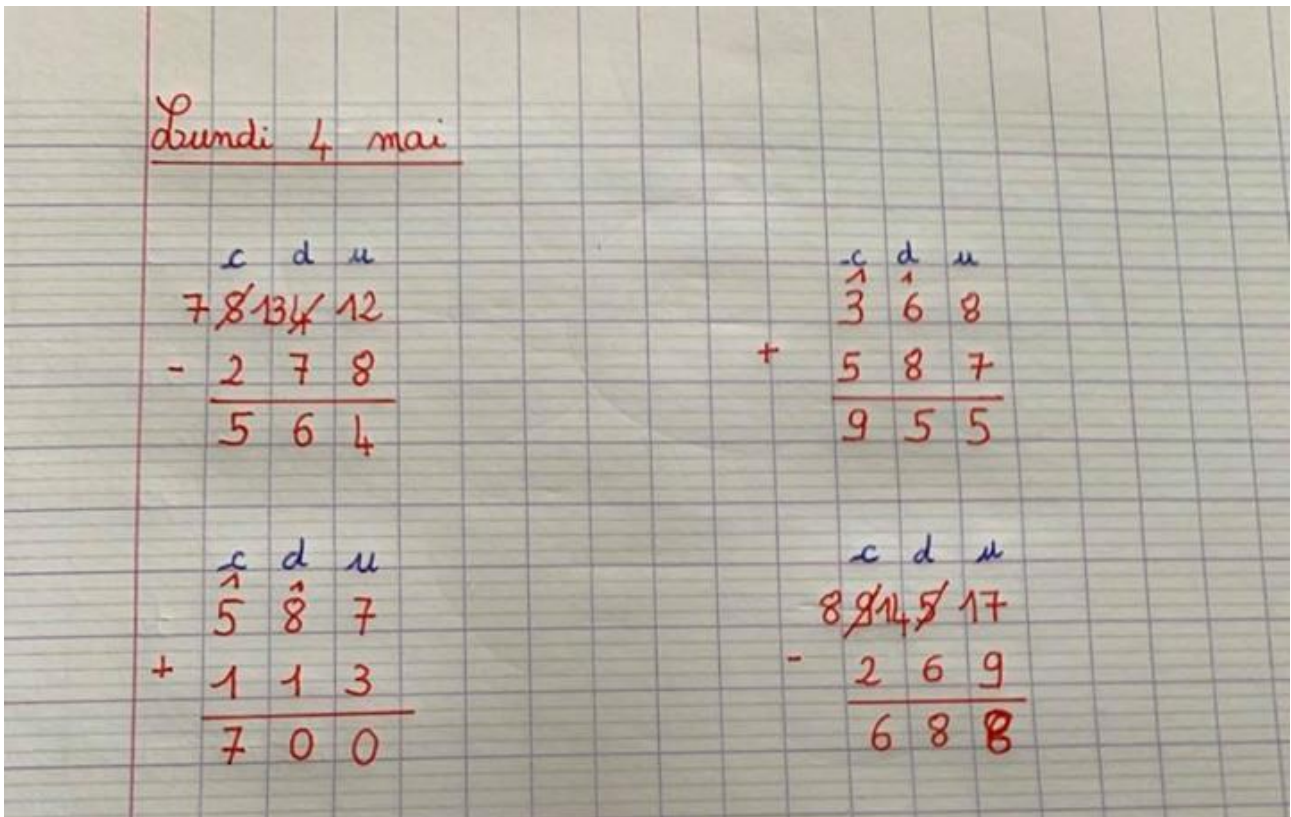 Lundi 4 mai
c d u
7 8 13 4 12
- 2 7 8
5 6 4
c d u
1 1
3 6 8
+ 5 8 7
9 5 5
c d u
1 1
5 8 7
+ 1 1 3
7 0 0
c d u
8 9 14 5 17
- 2 6 9
6 8 8